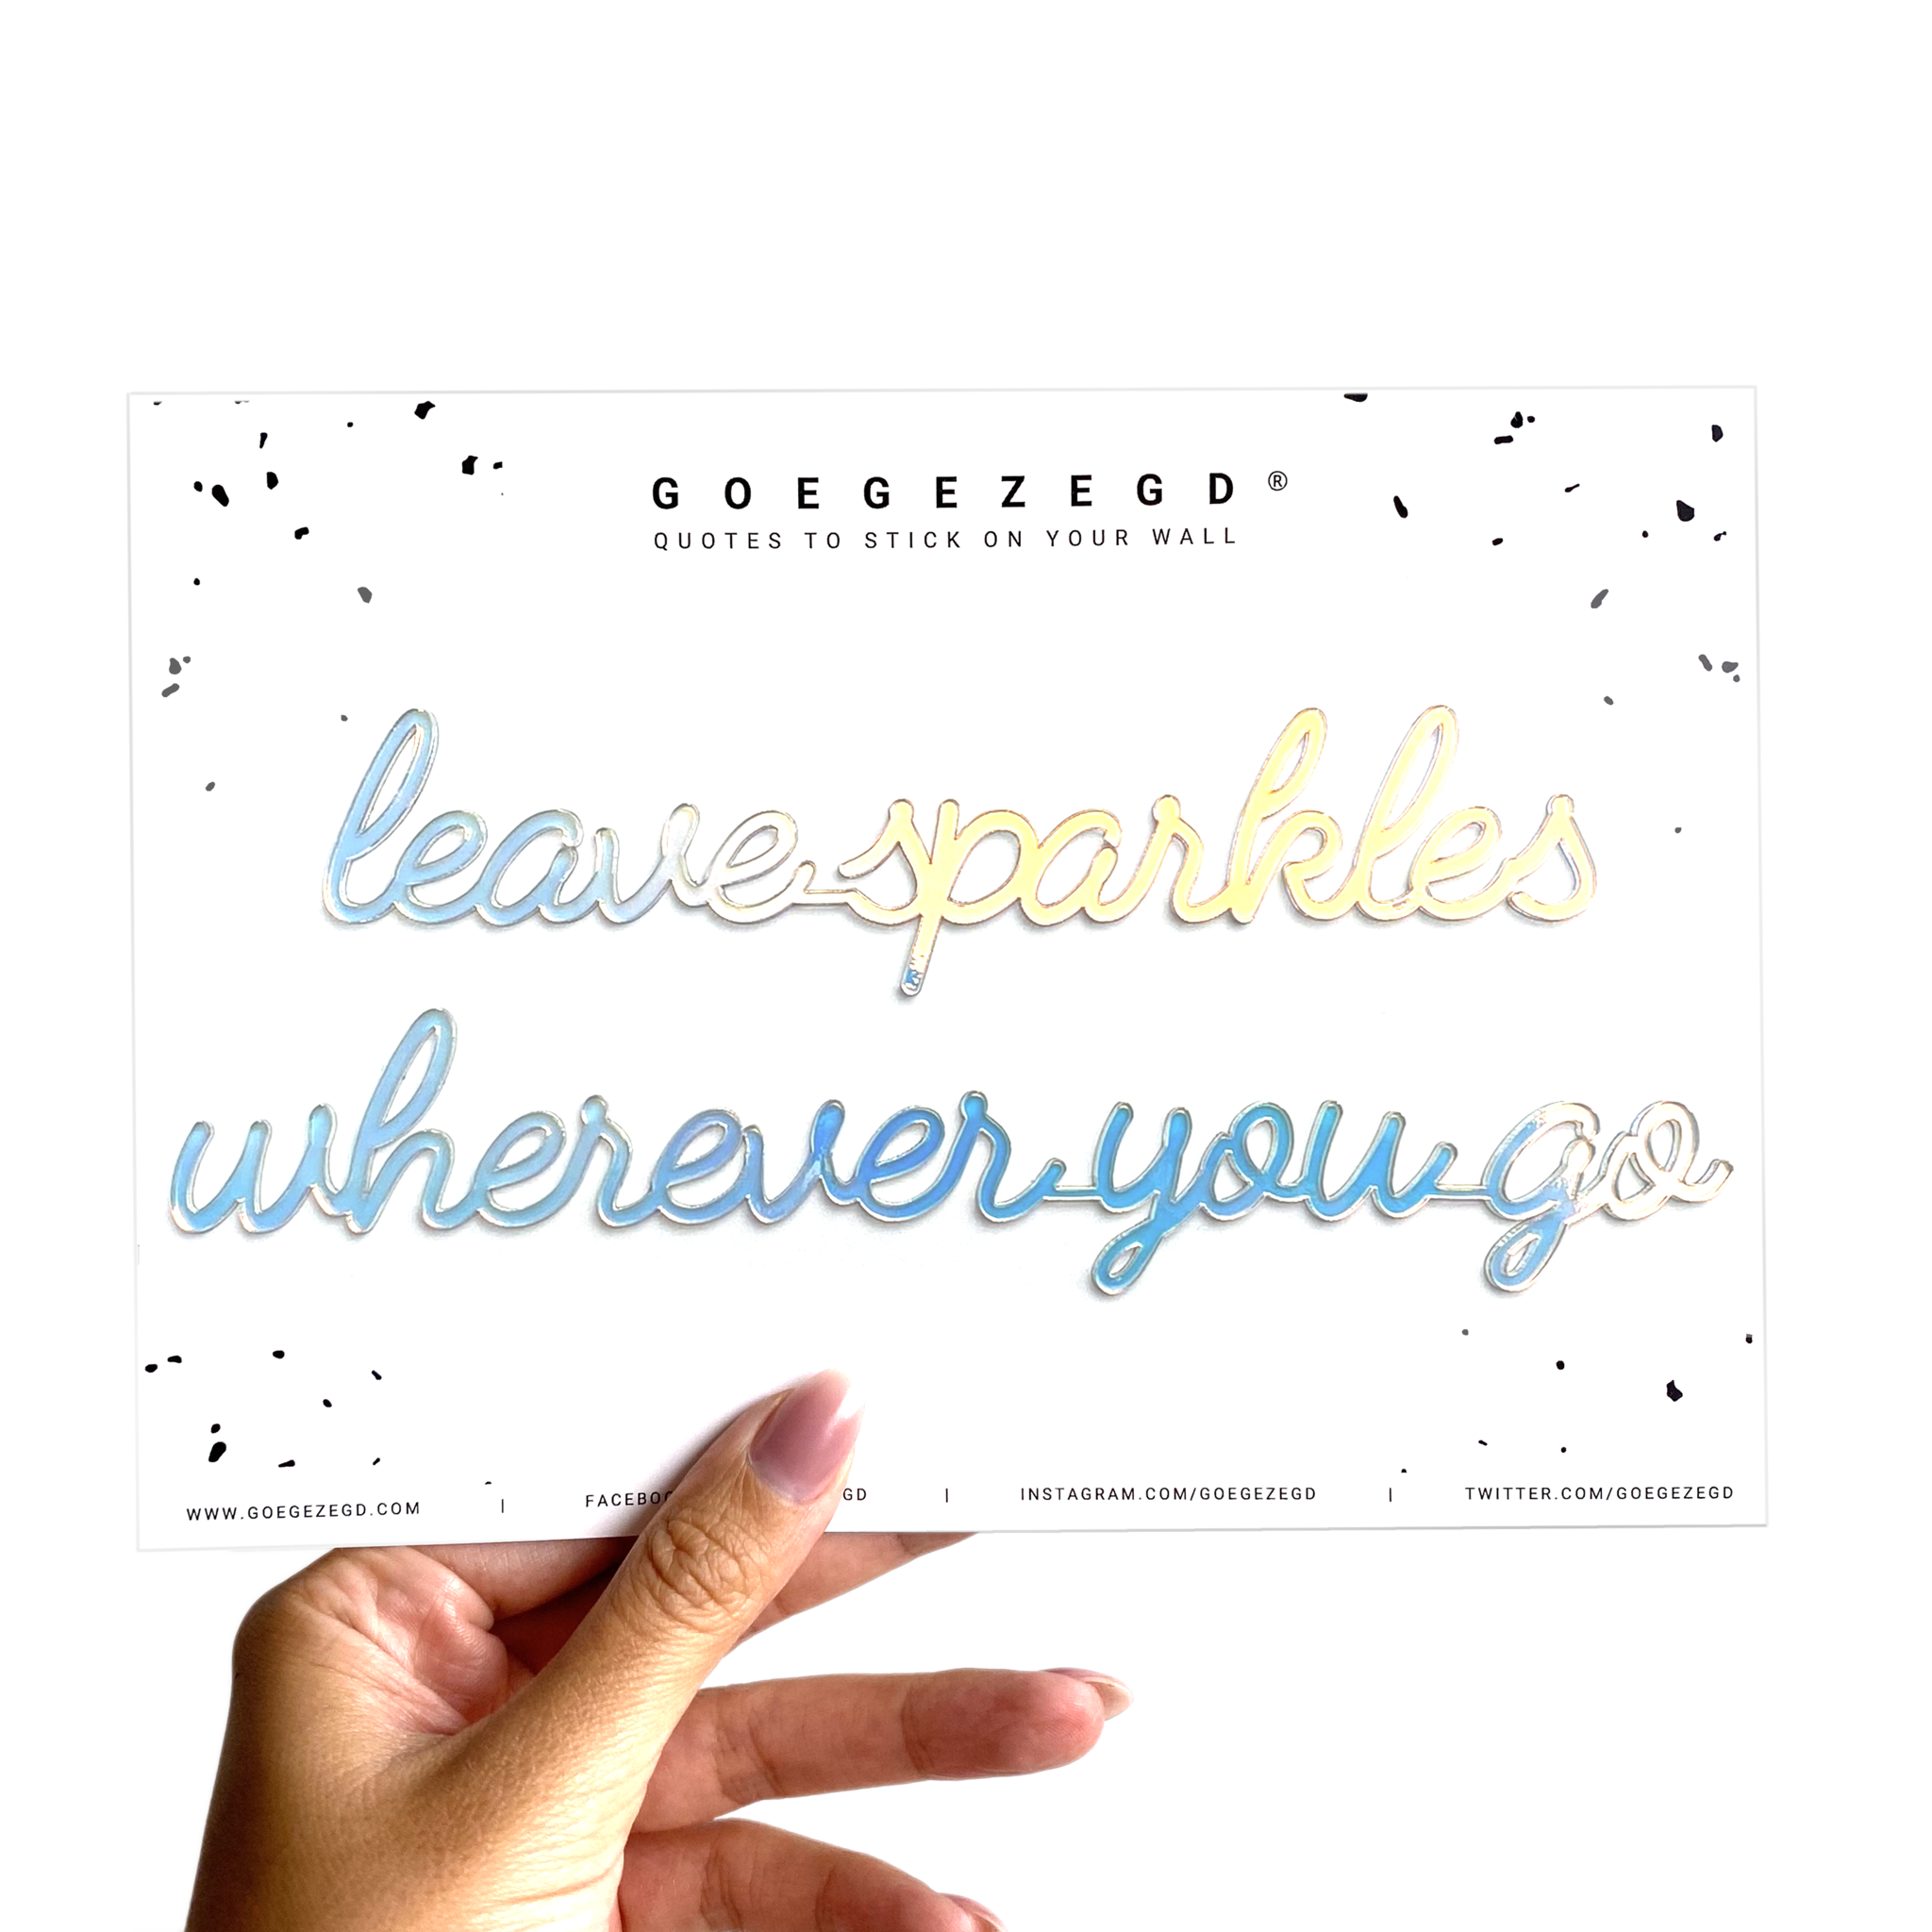 GOEGEZEGD®
QUOTES TO STICK ON YOUR WALL
leave sparkles
wherever you go
WWW.GOEGEZEGD.COM | | INSTAGRAM.COM/GOEGEZEGD | TWITTER.COM/GOEGEZEGD